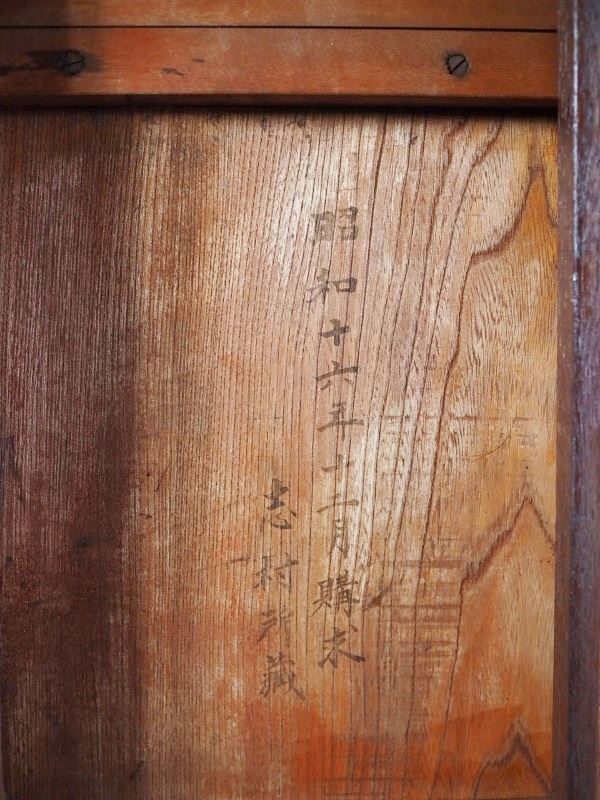 昭和十六年十二月購求
志村所藏